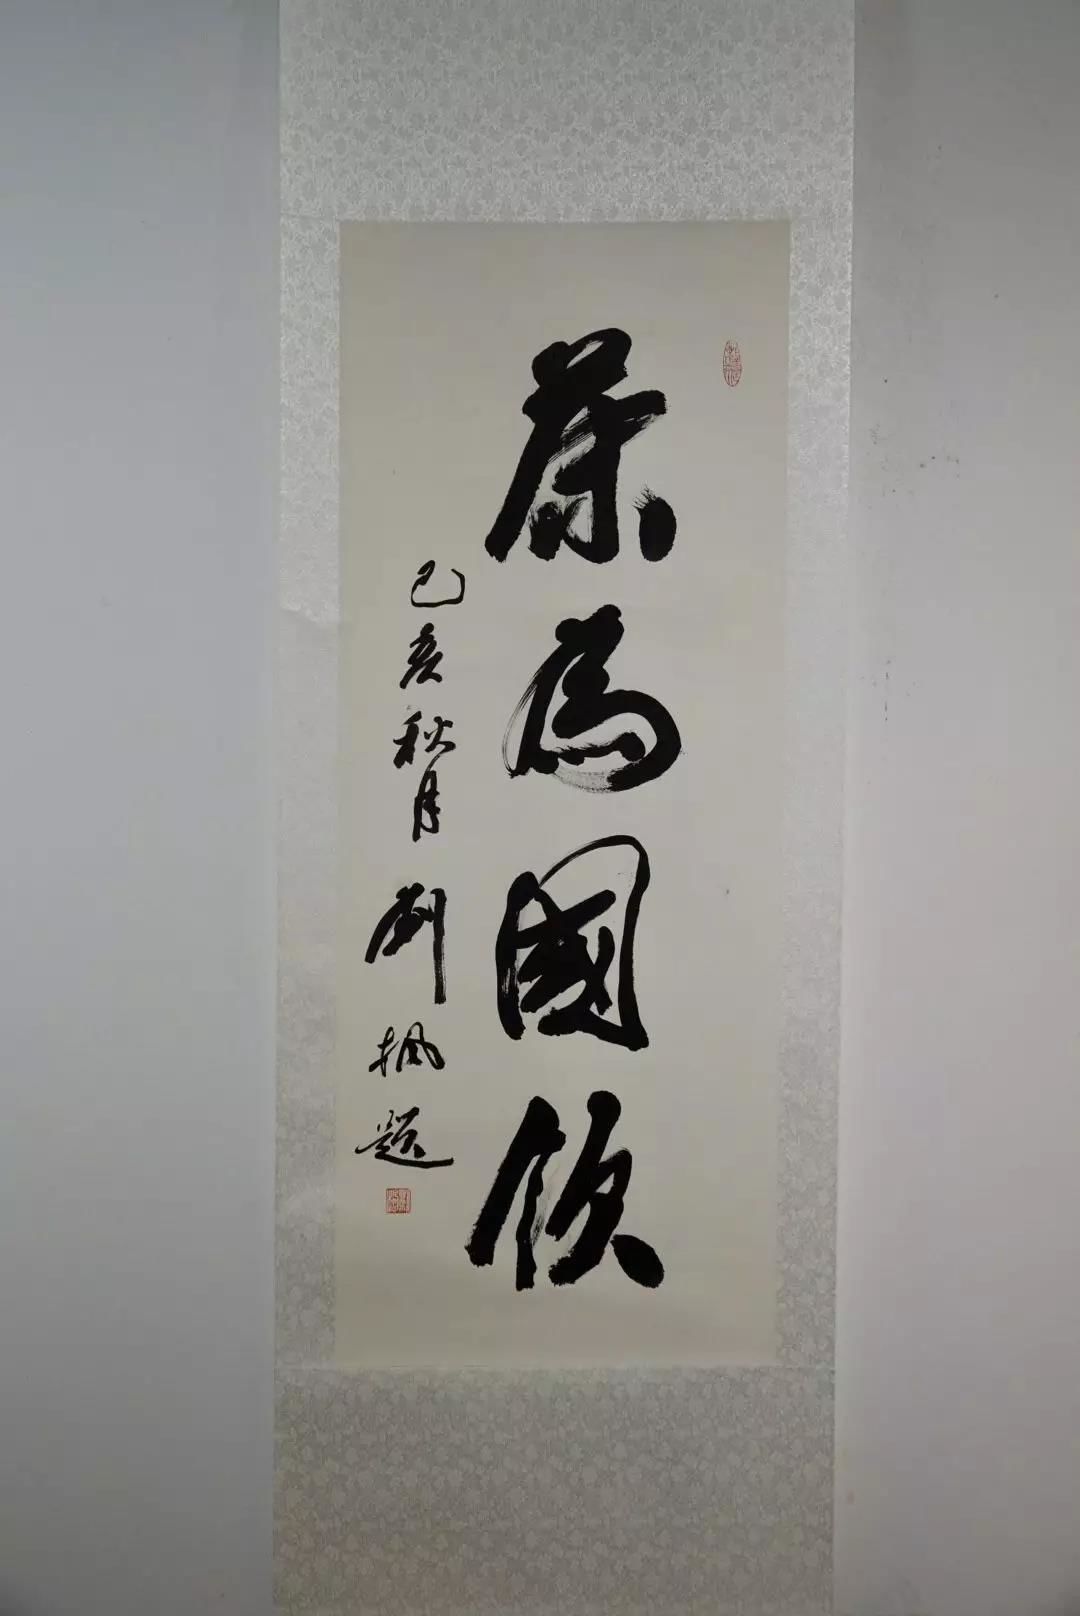 茶為國飲
己亥秋月 劉楓題